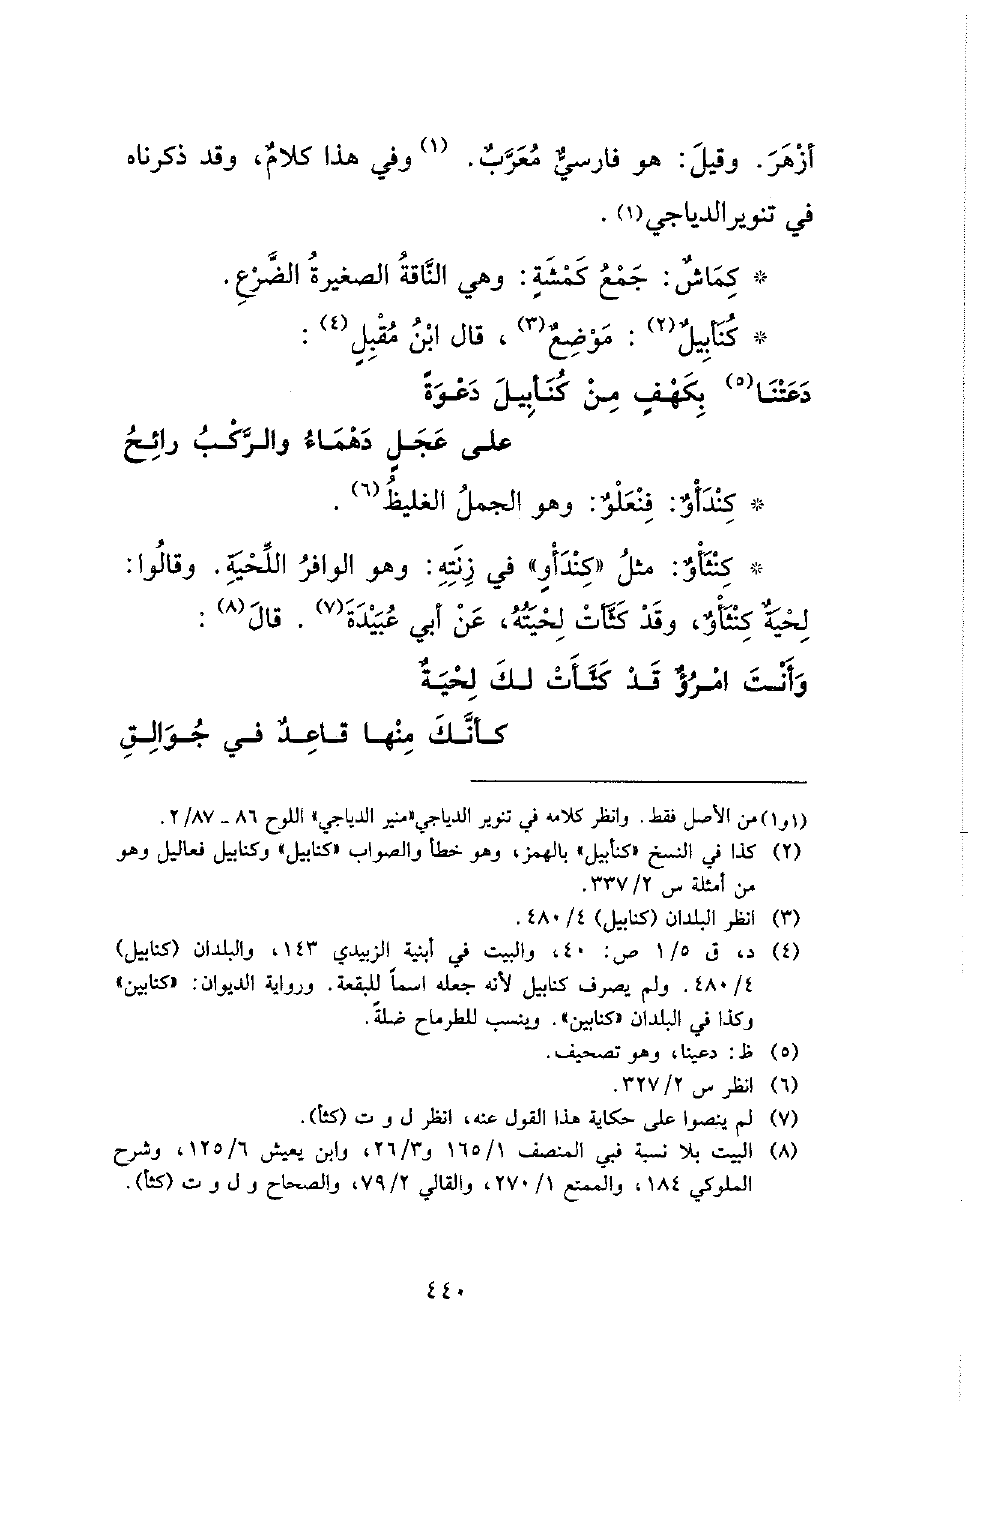 أزْهَرَ. وقيلَ: هو فارسيٌّ مُعَرَّبٌ. (١) وفي هذا كلامٌ، وقد ذكرناه
في تنوير الدياجي(١) .
* كِمَاشٌ: جَمْعُ كَمْشَةٍ: وهي النَّاقةُ الصغيرةُ الضَّرْعِ.
* كُنَأبِيلٌ(٢) : مَوْضِعٌ(٣) ، قال ابْنُ مُقْبِلٍ(٤) :
دَعَتْنَا(٥) بِكَهْفٍ مِنْ كُنَأبِيلَ دَعْوَةً
على عَجَلٍ دَهْمَاءُ والرَّكْبُ رائِحُ
* كِنْدَأْوٌ: فِنْعَلْوٌ: وهو الجملُ الغليظُ(٦) .
* كِنْثَأْوٌ: مثلُ «كِنْدَأْوٍ» في زِنَتِهِ: وهو الوافرُ اللِّحْيَةِ. وقالُوا:
لِحْيَةٌ كِنْثَأْوٌ، وقَدْ كَثَّأتْ لِحْيَتُهُ، عَنْ أبي عُبَيْدَةَ(٧) . قالَ(٨) :
وَأَنْتَ امْرُؤٌ قَدْ كَثَّأَتْ لكَ لِحْيَةٌ
كأنَّكَ مِنْها قاعِدٌ في جُوَالِقِ
(١و١) من الأصل فقط. وانظر كلامه في تنوير الدياجي «منير الدياجي» اللوح ٨٦ ـ ٢/٨٧.
(٢) كذا في النسخ «كنأبيل» بالهمز، وهو خطأ والصواب «كنابيل» وكنابيل فعاليل وهو
من أمثلة س ٣٣٧/٢.
(٣) انظر البلدان (كنابيل) ٤٨٠/٤.
(٤) د، ق ١/٥ ص: ٤٠، والبيت في أبنية الزبيدي ١٤٣، والبلدان (كنابيل)
٤٨٠/٤. ولم يصرف كنابيل لأنه جعله اسماً للبقعة. ورواية الديوان: «كنابين»
وكذا في البلدان «كنابين». وينسب للطرماح ضلةً.
(٥) ظ: دعينا، وهو تصحيف.
(٦) انظر س ٣٢٧/٢.
(٧) لم ينصوا على حكاية هذا القول عنه، انظر ل و ت (كثأ).
(٨) البيت بلا نسبة في المنصف ١٦٥/١ و٢٦/٣، وابن يعيش ١٢٥/٦، وشرح
الملوكي ١٨٤، والممتع ٢٧٠/١، والقالي ٧٩/٢، والصحاح و ل و ت (كثأ).
٤٤٠